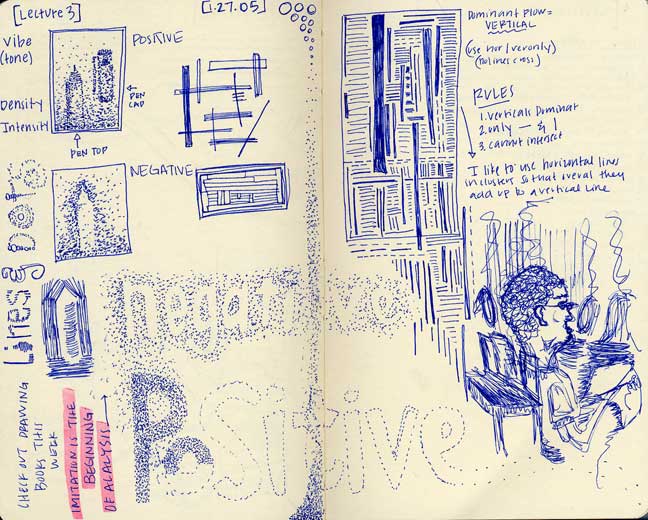 [Lecture 3]
[1.27.05]
Vibe
(tone)
POSITIVE
Density
Intensity
PEN
CAP
PEN TOP
NEGATIVE
Lines
negative
Positive
CHECK OUT DRAWING
BOOKS THIS
WEEK
IMITATION IS THE
BEGINNING
OF ALALYSIS
Dominant Flow=
VERTICAL
(use hor/ver only)
(no lines cross)
RULES
1. verticals Dominat
2. only — & |
3. cannot intersect
I like to use horizontal lines
in clusters so that overal they
add up to a vertical line